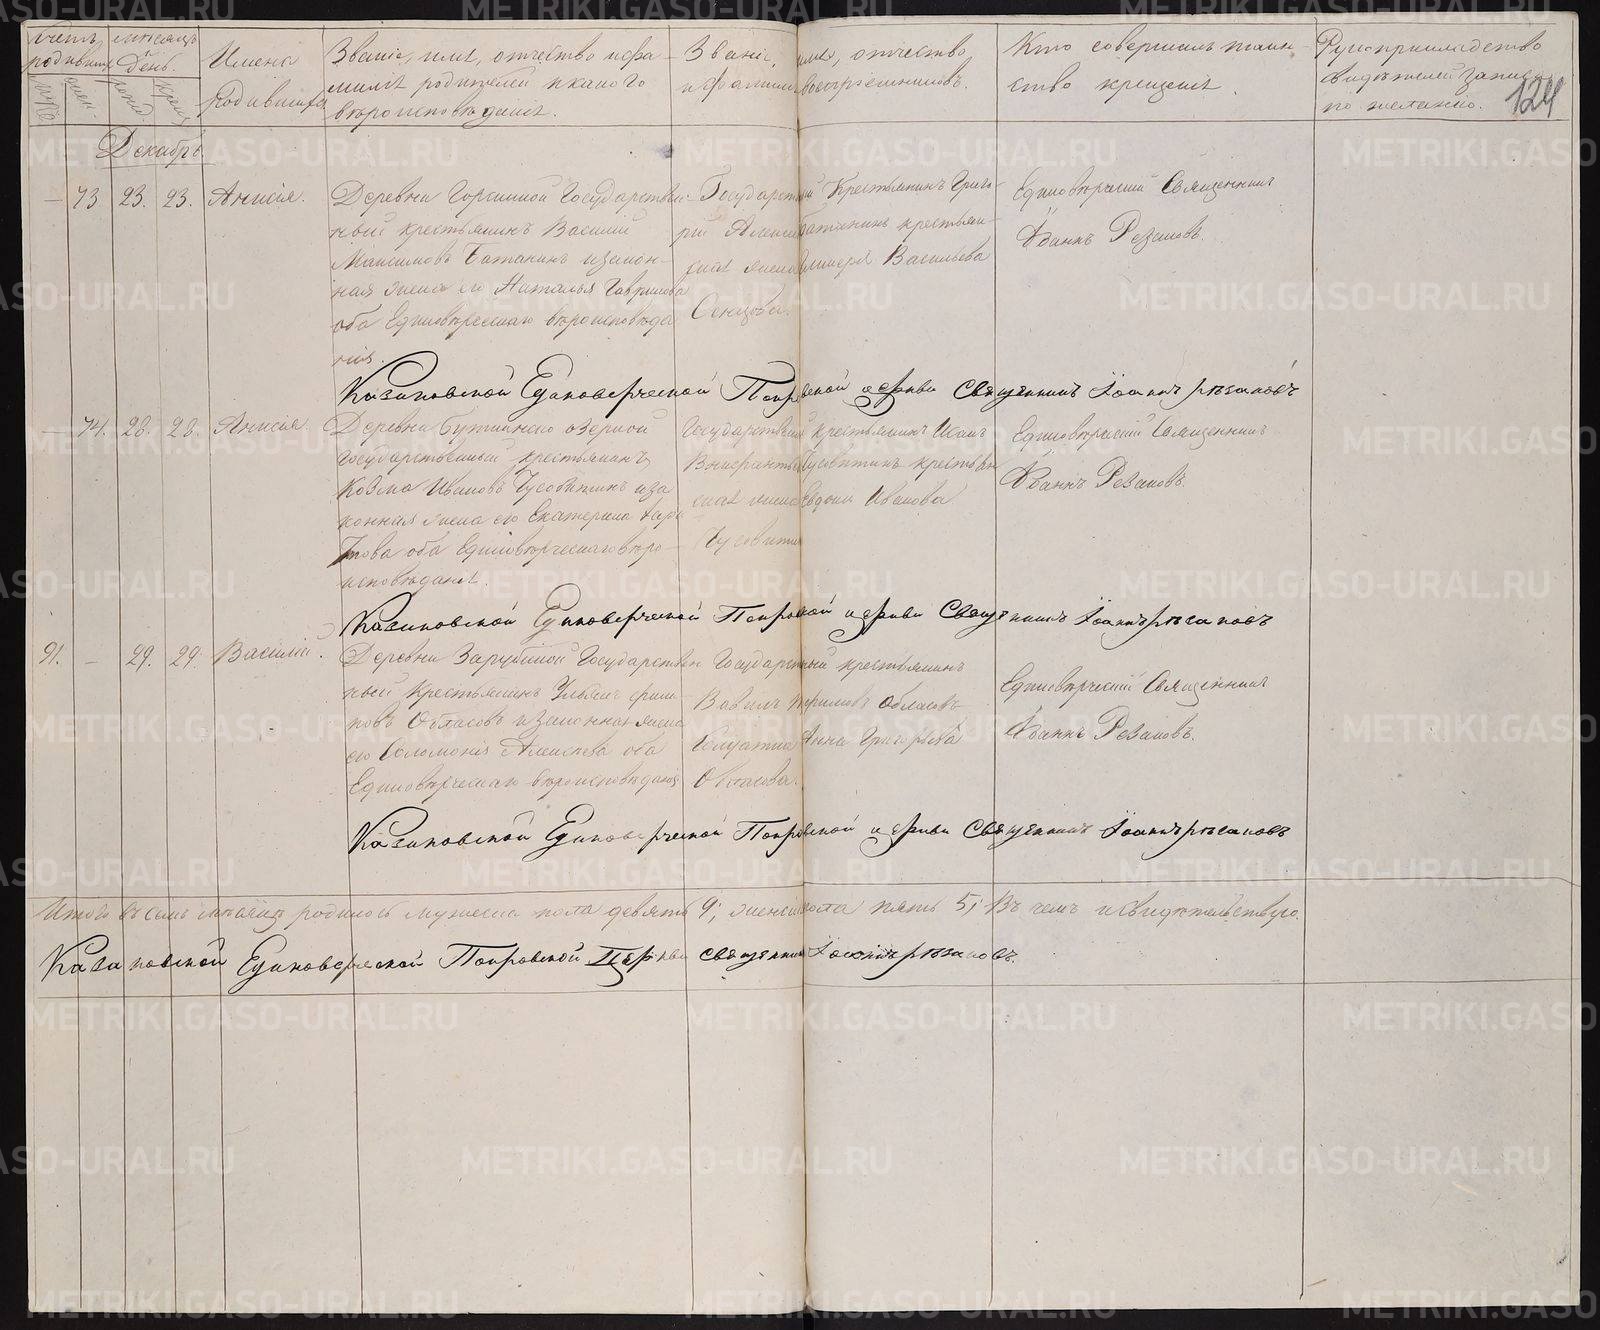 Счетъ родившихъ
муж.
жен.
Мѣсяцъ
День.
рожд.
крещ.
Имена
Родившихся
Званіе, имя, отчество и фа-
милія родителей и какого
вѣроисповѣданія.
Званіе, имя, отчество
и фамилія воспріемниковъ.
Кто совершалъ таин-
ство крещенія.
Рукоприкладство
свидѣтелей записи
по желанію.
124
Декабрь
— 73. 23. 23. Анисія.
Деревни Государствен-
ный крестьянинъ Василій
Максимовъ Батанинъ и закон-
ная жена его Наталья Гаврилова
оба Единовѣрческаго вѣроисповѣда
нія.
Государственный Крестьянинъ Григо-
рій Алексѣевъ Батанинъ крестьян-
ская жена Васильева
Единовѣрческій Священникъ
Іоаннъ Резановъ.
Казаковской Единоверческой Покровской церкви Священникъ Іоаннъ Рѣзановъ
— 74. 28. 28. Анисія.
Деревни озерной
Государственный крестьянинъ
Козма Ивановъ Чусовитинъ и за
конная жена его Екатерина
това оба Единовѣрческаго вѣро-
исповѣданія.
Государственный крестьянинъ
Чусовитинъ крестьян
ская жена Евдокія Иванова
Чусовитина
Единовѣрческій Священникъ
Іоаннъ Резановъ.
Казаковской Единоверческой Покровской церкви Священникъ Іоаннъ Рѣзановъ
91. — 29. 29. Василій.
Деревни Зарубиной Государствен
ный Крестьянинъ Ульянъ
повъ Обласовъ и законная жена
его Соломонія Алексѣева оба
Единовѣрческаго вѣроисповѣданія
Государственный крестьянинъ
Вавилъ Обласовъ
Анна Григорьева
Обласова.
Единовѣрческій Священникъ
Іоаннъ Резановъ.
Казаковской Единоверческой Покровской церкви Священникъ Іоаннъ Рѣзановъ
Итого въ семъ мѣсяцѣ родилось мужеска пола девять 9; женска пола пять 5; Въ чемъ и свидѣтельствую.
Казаковской Единоверческой Покровской Церкви священникъ Іоаннъ Рѣзановъ.
METRIKI.GASO-URAL.RU